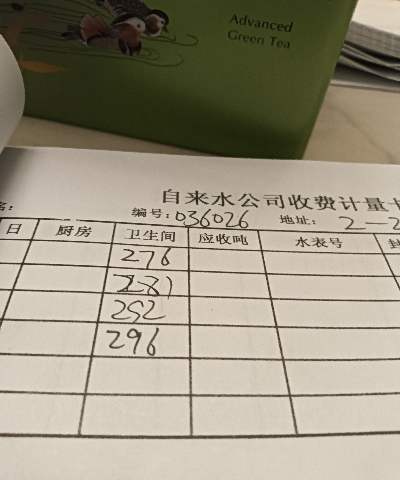 Advanced
Green Tea
自来水公司收费计量卡
编号: 036026 地址: 2-2
日 厨房 卫生间 应收吨 水表号
276
281
292
296